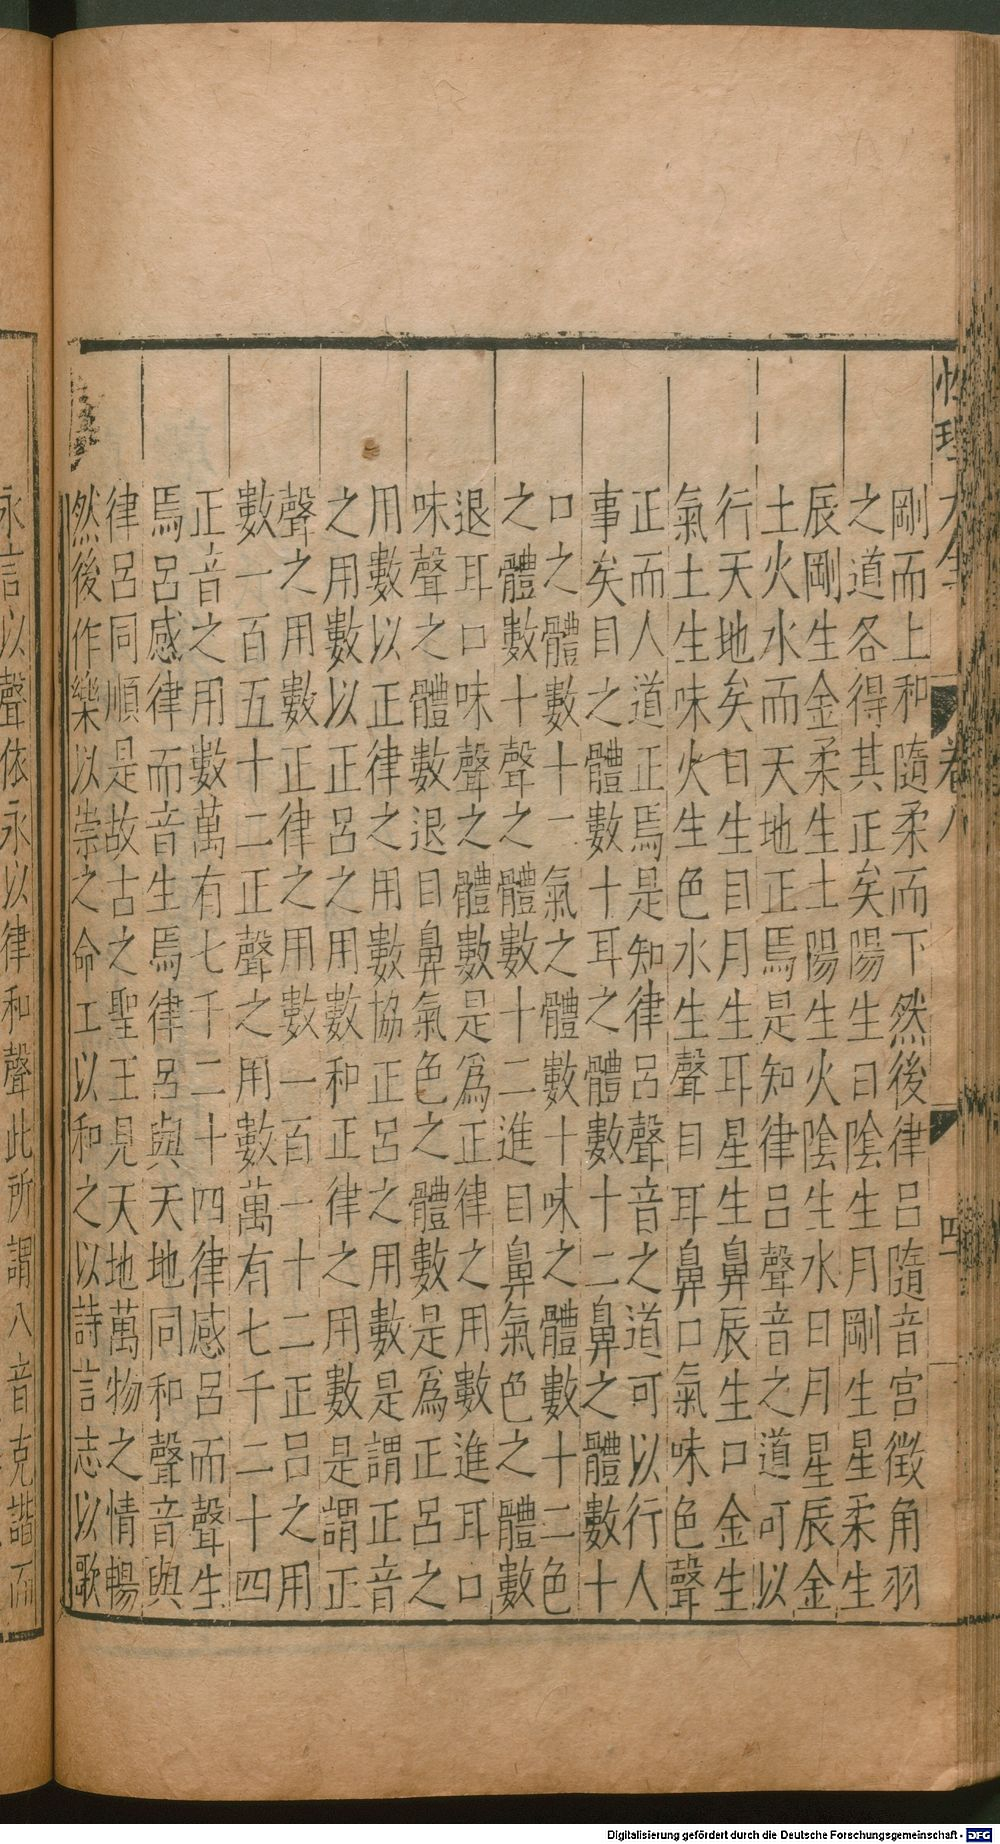 性理大全 卷八 四
剛而上和隨柔而下然後律呂隨音宮徵角羽
之道各得其正矣陽生日陰生月剛生星柔生
辰剛生金柔生土陽生火陰生水日月星辰金
土火水而天地正焉是知律呂聲音之道可以
行天地矣日生目月生耳星生鼻辰生口金生
氣土生味火生色水生聲目耳鼻口氣味色聲
正而人道正焉是知律呂聲音之道可以行人
事矣目之體數十耳之體數十二鼻之體數十
口之體數十二氣之體數十味之體數十二色
之體數十聲之體數十二進目鼻氣色之體數
退耳口味聲之體數是為正律之用數進耳口
味聲之體數退目鼻氣色之體數是為正呂之
用數以正律之用數協正呂之用數是謂正音
之用數以正呂之用數和正律之用數是謂正
聲之用數正律之用數一百一十二正呂之用
數一百五十二正聲之用數萬有七千二十四
正音之用數萬有七千二十四律感呂而聲生
焉呂感律而音生焉律呂與天地同和聲音與
律呂同順是故古之聖王見天地萬物之情暢
然後作樂以崇之命工以和之以詩言志以歌
永言以聲依永以律和聲此所謂八音克諧而
Digitalisierung gefördert durch die Deutsche Forschungsgemeinschaft - DFG